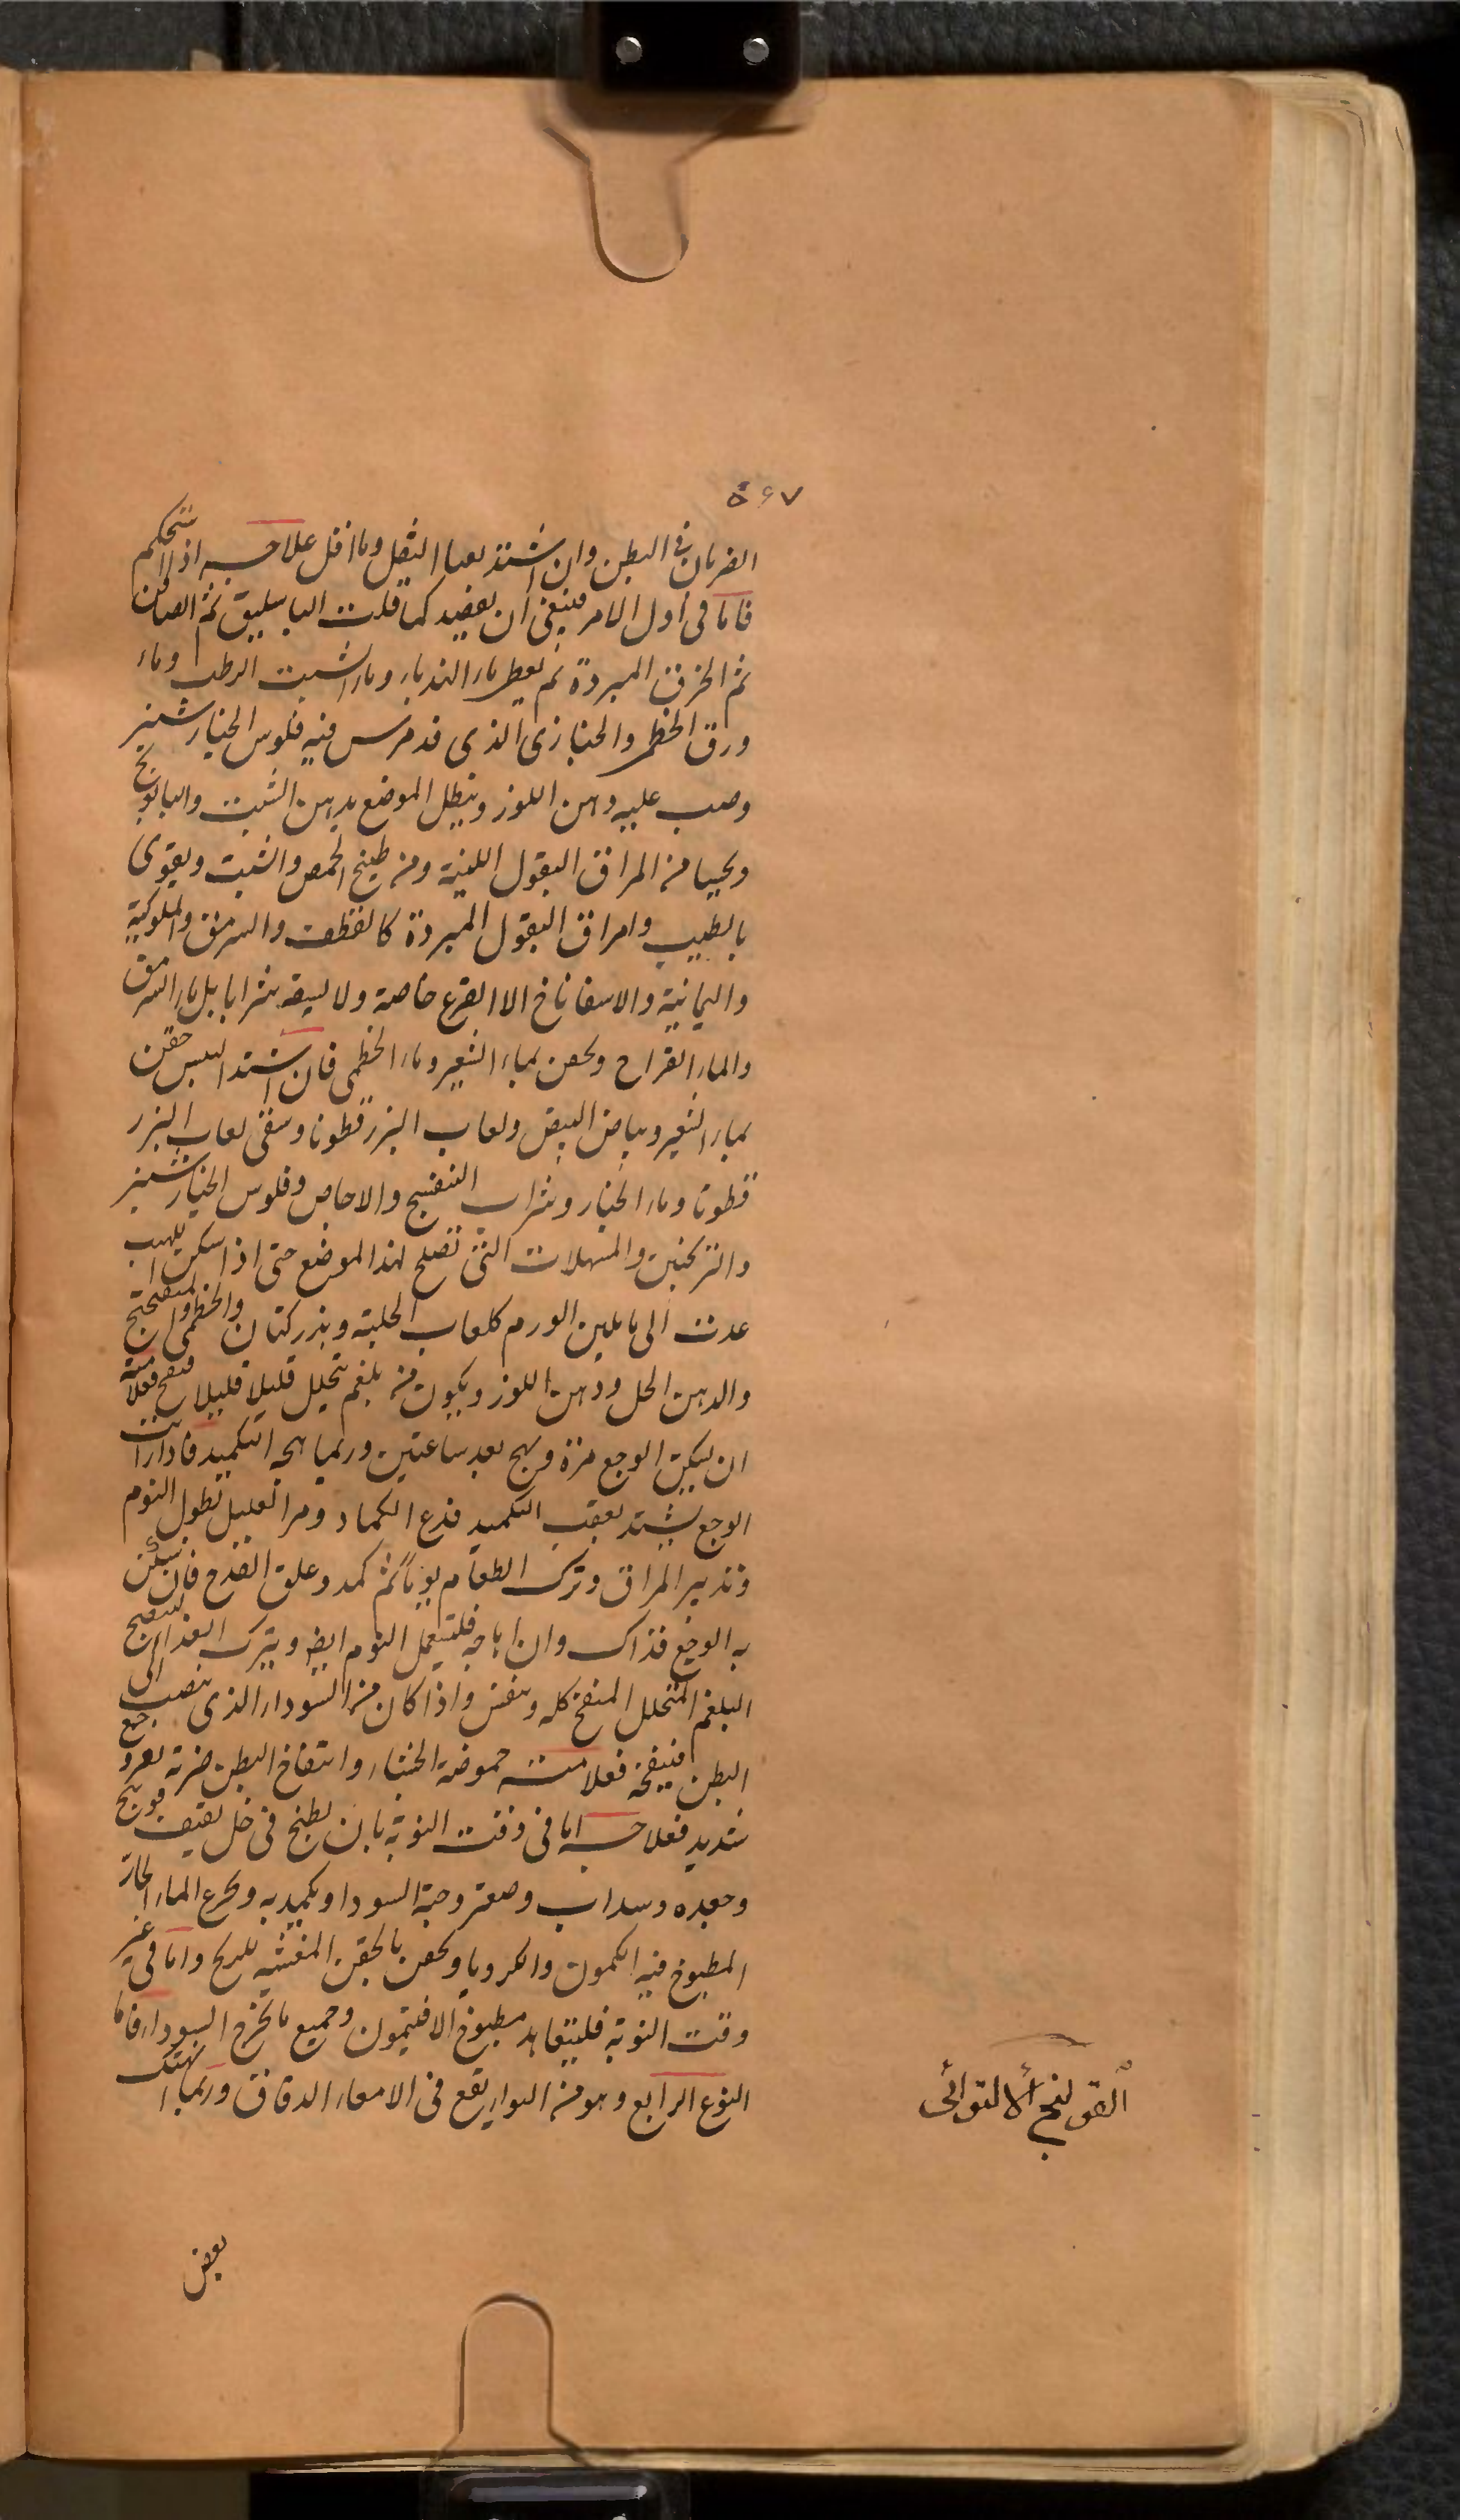 ۵۶۷
الضربان فى البطن وان اشتد بعا الثقل وما اقل علاجه اذا استحكم
فاما فى اول الامر فينبغى ان يفصد كما قلت الباسليق ثم الصافن
ثم الخرق المبردة ثم يعطى ماء الهندباء وماء الشبت الرطب وماء
ورق الخطمى والخبازى الذى قد مرس فيه فلوس الخيار شنبر
وصب عليه دهن اللوز وينطل الموضع بدهن الشبت والبابونج
ويحسا من المراق البقول اللينة ومن طبيخ الحمص والشبت ويقوى
بالطيب وامراق البقول المبردة كالقطف والسرمق والملوكية
واليمانية والاسفاناخ الا القرع خاصة ولا يسقه شرابا بل ماء السرمق
والماء القراح ويحقن بماء الشعير وماء الخطمى فان اشتد اليبس حقن
بماء الشعير وبياض البيض ولعاب البزر قطونا وسقى لعاب البزر
قطونا وماء الخيار وشراب البنفسج والاجاص وفلوس الخيار شنبر
والترنجبين والمسهلات التى تصلح لهذا الموضع حتى اذا سكن اللهيب
عدت الى ما يلين الورم كلعاب الحلبة وبذر كتان والخطمى والميفختج
والدهن الحل ودهن اللوز ويكون من بلغم يتحلل قليلا قليلا فينفخ فعلامته
ان يسكن الوجع مرة ويهج بعد ساعتين وربما هجه التكميد فاذا رايت
الوجع يشتد بعقب التكميد فدع الكماد ومر العليل بطول النوم
وتدبير المراق وترك الطعام يوما ثم كمد وعلق القدح فان سكن
به الوجع فذاك وان اهاجه فليستعمل النوم ايضا ويترك الغذا لينضج
البلغم المتحلل المنفخ كله وينفش واذا كان من السوداء الذى ينصب الى
البطن فينفخه فعلامته حموضة الجشاء وانتفاخ البطن ضربة بعد وجع
شديد فعلاجه اما فى وقت النوبة بان يطبخ فى خل ثقيف فوتنج
وجعده وسداب وصعتر وحبة السودا ويكمد به ويجرع الماء الحار
المطبوخ فيه الكمون والكرويا ويحقن بالحقن المفشيه للريح واما فى غير
وقت النوبة فليتعاهد مطبوخ الافتيمون وجميع ما يخرج السوداء فاما
النوع الرابع وهو من اليواريقع فى الامعاء الدقاق وربما انهتك
القولنج الالتوائى
بعض